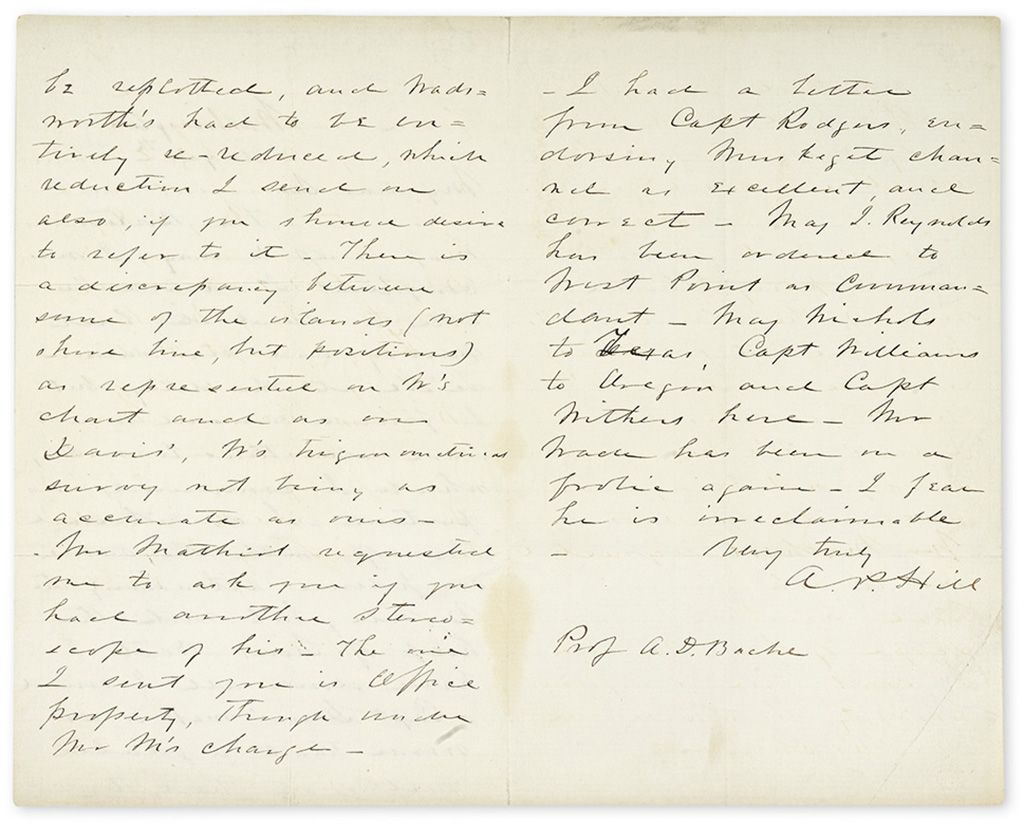 be replotted, and Wads=
worth's had to be en=
tirely re-reduced, which
reduction I send on
also, if you should desire
to refer to it - There is
a discrepancy between
some of the islands (not
shore line, but positions)
as represented on W's
chart and as on
Davis', W's trigonometrical
survey not being as
accurate as ours -
- Mr Mathiot requested
me to ask you if you
had another stereo=
scope of his - The one
I sent you is Office
property, though under
Mr M's charge -
- I had a letter
from Capt Rodgers, en=
dorsing Muskeget chan=
nel as excellent, and
correct - Maj J. Reynolds
has been ordered to
West Point as Comman=
dant - Maj Nichols
to Texas, Capt Williams
to Oregon and Capt
Withers here - Mr
Wade has been on a
frolic again - I fear
he is irreclaimable
- Very truly
A. P. Hill
Prof A. D. Bache